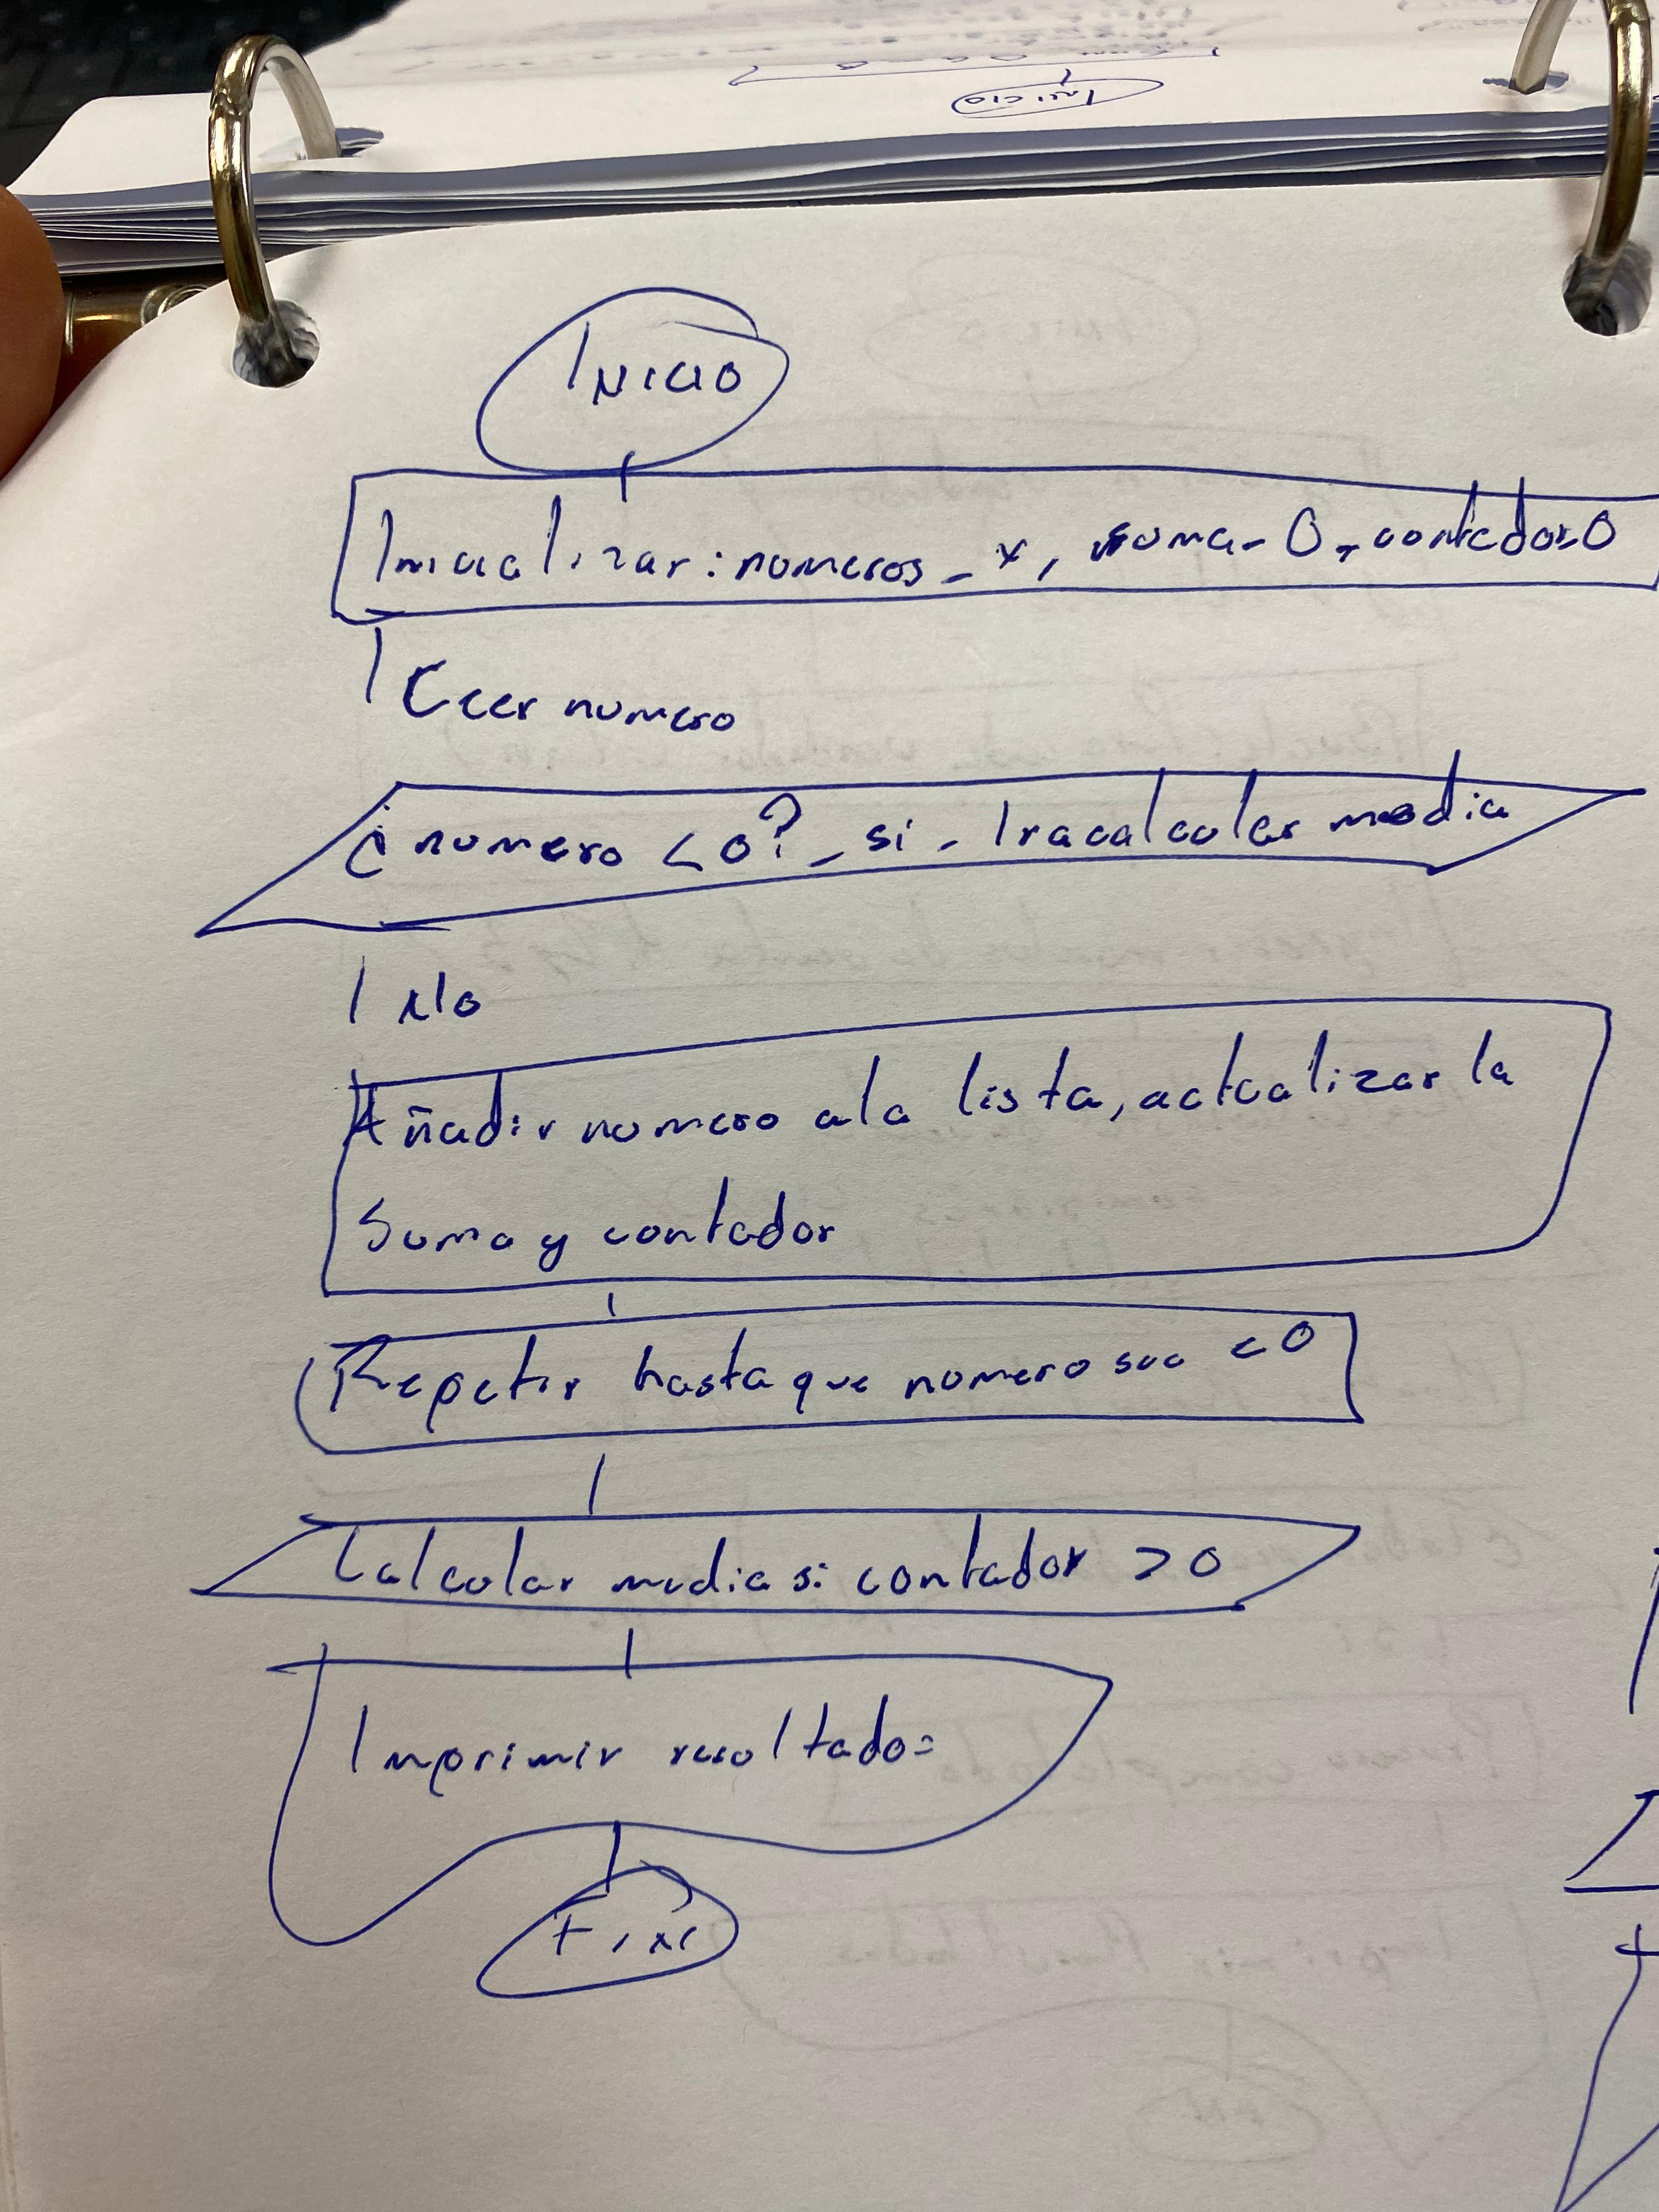 Inicio
Inicio
Inicializar: numeros - x, suma - 0, contador=0
Leer numero
¿numero < 0? - si - Ir a calcular media
No
Añadir numero a la lista, actualizar la
Suma y contador
Repetir hasta que numero sea < 0
Calcular media si contador > 0
Imprimir resultado=
Fin